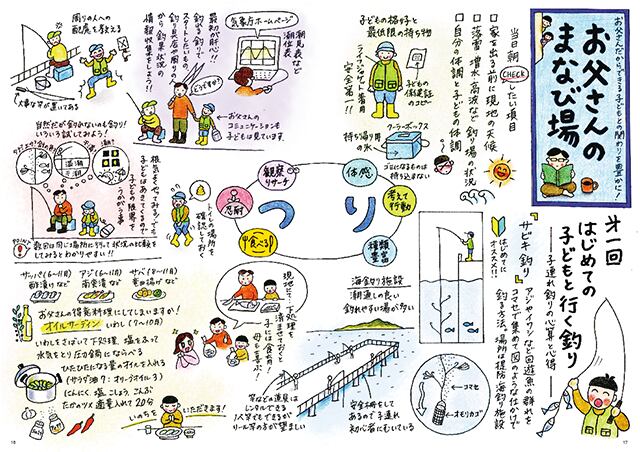 お父さんだからできる子どもとの関わりを豊かに!
お父さんの
まなび場
才一回
はじめての
子どもと行く釣り
―子連れ釣りの心算と心得―
当日朝CHECKしたい項目
□家を出る前に現地の天候
□落雪・増水・高波など釣り場の状況
□自分の体調と子どもの体調
子どもの格好と
最低限の持ち物
子どもの
保険証
のコピー
ライフジャケット着用
安全第一!!
クーラーボックス
持ち帰り用
の氷
ゴミになるものは
持ち込まない
気象庁ホームページ
潮見表など
潮位表
最初が肝心!!
釣れる釣りで
スタートしたいもの。
釣り具店や周りの
人から釣果状況の
情報収集をしよう!
どうですか?
←お父さんの
コミュニケーションを
子どもは見ています。
周りの人への
配慮を教える
大事な竿が置いてある
自然だって釣りがれないのも釣り!
いろいろ試してみよう!
満潮
干潮
根気もやってみます!でも
子どもはあきてくるので
子どもの限界を
うかがう事
POINT
数回は同じ場所に行って状況の比較を
してみるとわかりやすい!!
トイレの場所を
確認しておく
つり
観察
リサーチ
体感
忍耐
考えて
行動
食べる!!
種類
豊富
サビキ釣り
はじめてに
オススメ!!
アジやイワシなど回遊魚の群れを
コマセで集めて図のような仕掛けで
釣る方法。場所は堤防・海釣り施設
コマセ
オモリカゴ
海釣り施設
潮通しの良い
釣れやすい場が多い
竿などの道具は
レンタルできる
1人竿でもできるが
リール竿の方が望ましい
安全柵をして
あるので子連れ
初心者にむいている
現地にて下処理
済ませておくと
子には食育!
母も喜ぶ!
サッパ(6〜11月)
酢漬けなど
アジ(6〜11月)
南蛮漬など
サバ(8〜11月)
竜田揚げなど
お父さんの得意料理にしてしまいますか!
オイルサーディン
いわし(7〜10月)
いわしをさばいて下処理 塩をふって
水気をとり圧力鍋にならべる
ひたひたになる量のオイルを入れる
(サラダ油7:オリーブオイル3)
にんにく、塩、こしょう、こんぶ
たかのツメ 適量入れて20分
いのちを
いただきます!
16
17